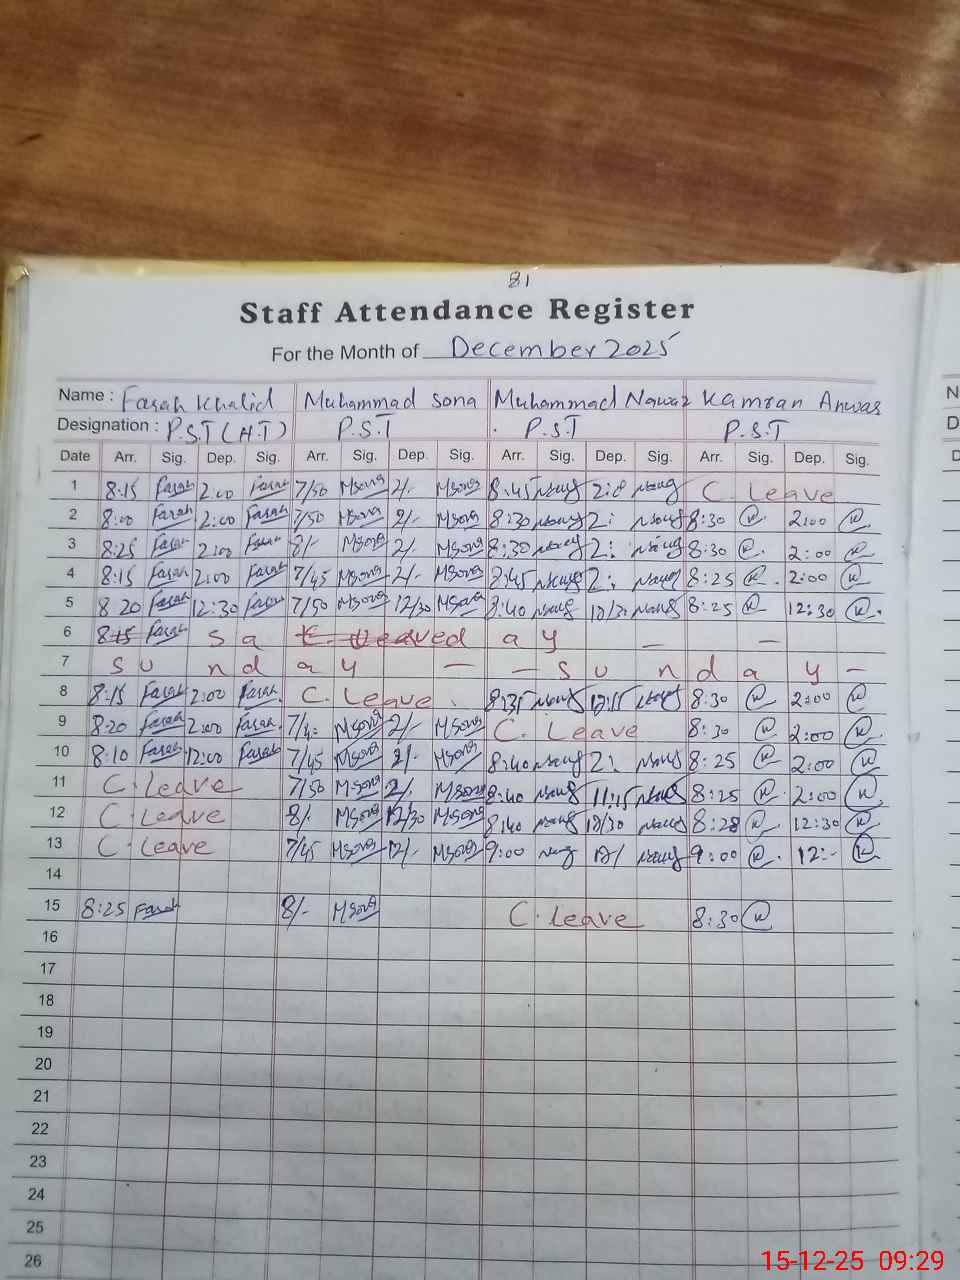 81
Staff Attendance Register
For the Month of December 2025
Name : Farah Khalid Muhammad Sona Muhammad Nawaz Kamran Anwar
Designation : P.S.T (H.T) P.S.T P.S.T P.S.T
Date Arr. Sig. Dep. Sig. Arr. Sig. Dep. Sig. Arr. Sig. Dep. Sig. Arr. Sig. Dep. Sig.
1 8:15 Farah 2:00 Farah 7/50 MSona 2/- MSona 8:45 C. Leave
2 8:00 Farah 2:00 Farah 7/50 MSona 2/- MSona 8:30 2: 8:30 2:00
3 8:25 Farah 2:00 Farah 8/- MSona 2/- MSona 8:30 2: 8:30 2:00
4 8:15 Farah 2:00 Farah 7/45 MSona 2/- MSona 8:45 2: 8:25 2:00
5 8 20 Farah 12:30 Farah 7/50 MSona 12/30 MSona 8:40 8:25 12:30
6 8:15 Farah S a a y - -
7 S u n d a y - - S u n d a y -
8 8:15 Farah 2:00 Farah C. Leave 8:35 12:15 8:30 2:00
9 8:20 Farah 2:00 Farah MSona 2/- MSona C. Leave 8:30 2:00
10 8:10 Farah 12:00 Farah 7/45 MSona 2/- MSona 8:40 2: 8:25 2:00
11 C. Leave 7/50 MSona 2/- MSona 8:40 11:15 8:25 2:00
12 C. Leave 8/- MSona 12/30 MSona 8:40 8:28 12:30
13 C. Leave 7/45 MSona 12/- MSona 9:00 12/ 9:00 12:-
14
15 8:25 Farah 8/- MSona C. Leave 8:30
16
17
18
19
20
21
22
23
24
25
26
15-12-25 09:29